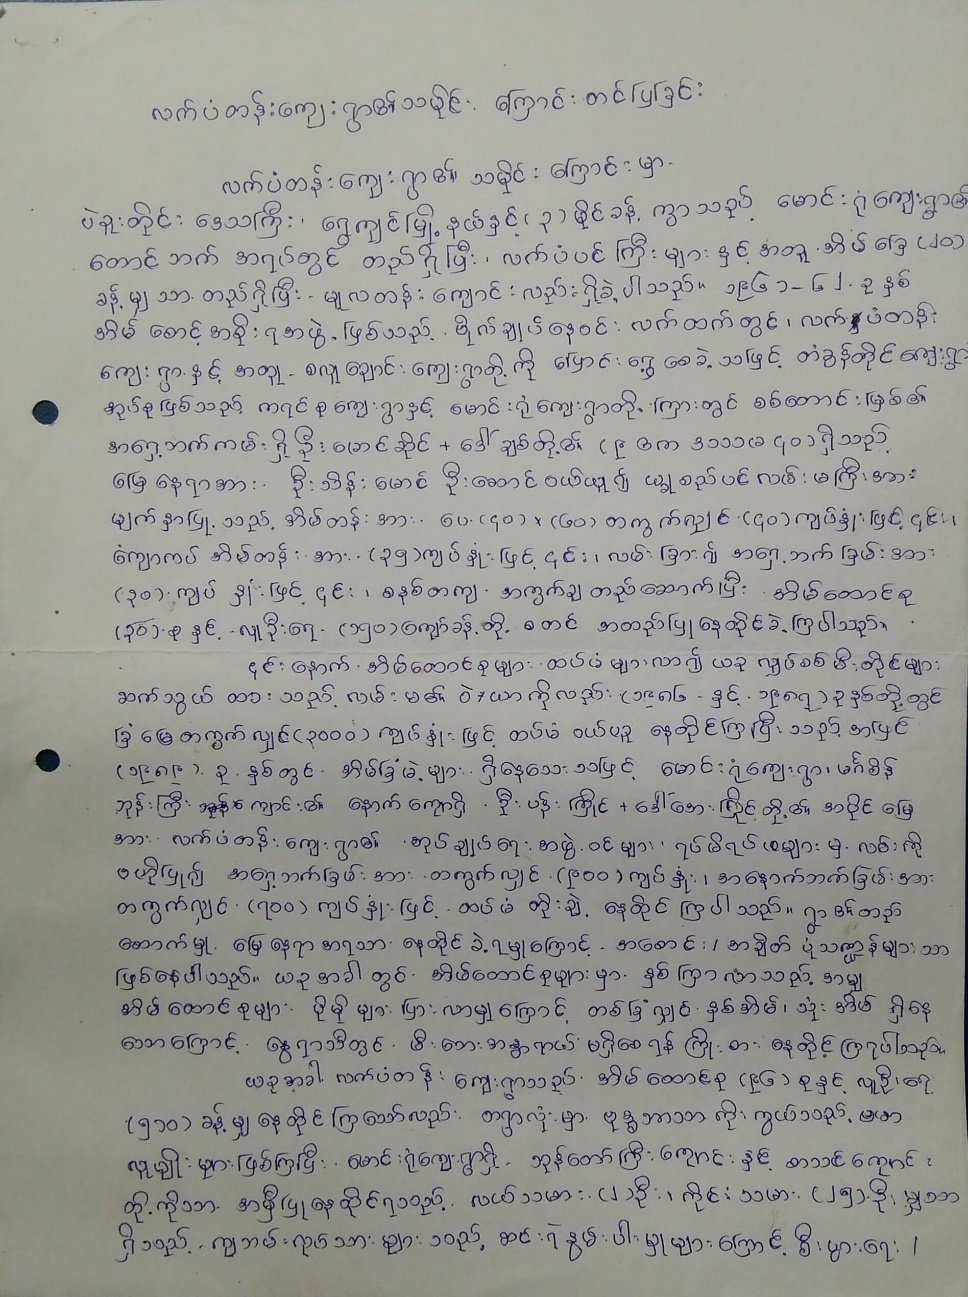 လက်ပံတန်းကျေးရွာ၏သမိုင်း ကြောင်းတင်ပြခြင်း
လက်ပံတန်းကျေးရွာ၏ သမိုင်းကြောင်းမှာ
ပဲခူးတိုင်းဒေသကြီး၊ ရွှေကျင်မြို့နယ်နှင့် (၃) မိုင်ခန့် ကွာသည့် မောင်းဂုံကျေးရွာ၏
တောင်ဘက် အရပ်တွင် တည်ရှိပြီး၊ လက်ပံပင်ကြီးများနှင့်အတူ အိမ်ခြေ (၂၀)
ခန့်မျှသာ တည်ရှိပြီး မူလတန်းကျောင်းလည်းရှိခဲ့ပါသည်။ ၁၉၆၁-၆၂ ခုနှစ်
အိမ်စောင့်အစိုးရအဖွဲ့ဖြစ်သည့် ဗိုလ်ချုပ်နေဝင်း လက်ထက်တွင်၊ လက်ပံတန်း
ကျေးရွာနှင့်အတူ စလူချောင်းကျေးရွာတို့ကို ပြောင်းရွှေ့စေခဲ့သဖြင့် တံခွန်တိုင်ကျေးရွာ
အုပ်စုဖြစ်သည့် ကရင်စုကျေးရွာနှင့် မောင်းဂုံကျေးရွာတို့ကြားတွင် စစ်တောင်းမြစ်၏
အရှေ့ဘက်ကမ်းရှိ ဦးမောင်ဆိုင် + ဒေါ်ချစ်တို့၏ ရှိသည့်
မြေနေရာအား ဦးသိန်းမောင် ဦးဆောင်ဝယ်ယူ၍ ယခုစည်ပင်လမ်းမကြီးအား
မျက်နှာပြုသည့် အိမ်တန်းအား ပေ (၄၀) x (၆၀) တကွက်လျှင် (၄၀) ကျပ်နှုံးဖြင့်၎င်း၊
ကျောကပ်အိမ်တန်းအား (၃၅) ကျပ်နှုံးဖြင့်၎င်း၊ လမ်းခြား၍ အရှေ့ဘက်ခြမ်းအား
(၃၀) ကျပ်နှုံးဖြင့်၎င်း၊ စနစ်တကျ အကွက်ချတည်ဆောက်ပြီး အိမ်ထောင်စု
(၃၀) စုနှင့် လူဦးရေ (၁၅၀) ကျော်ခန့်တို့ စတင် အတည်ပြုနေထိုင်ခဲ့ကြပါသည်။
၎င်းနောက် အိမ်ထောင်စုများ ထပ်မံများလာ၍ ယခု လျှပ်စစ်မီးတိုင်များ
ဆက်သွယ်ထားသည့် လမ်းမ၏ ဝဲ/ယာကိုလည်း (၁၉၈၆ နှင့် ၁၉၈၇) ခုနှစ်တို့တွင်
ခြံမြေတကွက်လျှင် (၃၀၀၀) ကျပ်နှုံးဖြင့် ထပ်မံဝယ်ယူ နေထိုင်ကြပြီးသည့်အပြင်
(၁၉၈၉) ခုနှစ်တွင် အိမ်ခြံမဲ့များ ရှိနေသေးသဖြင့် မောင်းဂုံကျေးရွာ၊ မင်္ဂစိန်
ဘုန်းကြီးကျောင်း၏ နောက်ကျောရှိ ဦးပန်းကြိုင် + ဒေါ်အေးကြိုင်တို့၏ အပိုင်မြေ
အား လက်ပံတန်းကျေးရွာ၏ အုပ်ချုပ်ရေးအဖွဲ့ဝင်များ၊ ရပ်မိရပ်ဖများမှ လမ်းကို
ဗဟိုပြု၍ အရှေ့ဘက်ခြမ်းအား တကွက်လျှင် (၉၀၀) ကျပ်နှုံး၊ အနောက်ဘက်ခြမ်းအား
တကွက်လျှင် (၇၀၀) ကျပ်နှုံးဖြင့် ထပ်မံတိုးချဲ့ နေထိုင်ကြပါသည်။ ရွာ၏တည်
ဆောက်မှု မြေနေရာအရသာ နေထိုင်ခဲ့ရမှုကြောင့် အစောင်း/အချိတ် ပုံသဏ္ဌာန်များသာ
ဖြစ်နေပါသည်။ ယခုအခါတွင် အိမ်ထောင်စုများမှာ နှစ်ကြာလာသည့်အမျှ
အိမ်ထောင်စုများ ပိုမိုများပြားလာမှုကြောင့် တစ်ခြံလျှင် နှစ်အိမ်၊ သုံးအိမ် ရှိနေ
သောကြောင့် နွေရာသီတွင် မီးဘေးအန္တရာယ် မရှိစေရန် ကြိုးစားနေထိုင်ကြရပါသည်။
ယခုအခါ လက်ပံတန်းကျေးရွာသည် အိမ်ထောင်စု (၉၆) စုနှင့် လူဦးရေ
(၅၁၀) ခန့်မျှ နေထိုင်ကြသော်လည်း တရွာလုံးမှာ ဗုဒ္ဓဘာသာကိုးကွယ်သည့် ဗမာ
လူမျိုးများဖြစ်ကြပြီး မောင်းဂုံကျေးရွာရှိ ဘုန်းတော်ကြီးကျောင်းနှင့် စာသင်ကျောင်း
တို့ကိုသာ အမှီပြုနေထိုင်ရသည့် လယ်သမား (၂) ဦး၊ ကိုင်းသမား (၂၅) ဦးမျှသာ
ရှိသည့် ကျဘမ်းလုပ်သားများသည့် ဆင်းရဲနွမ်းပါးမှုများကြောင့် စီးပွားရေး/